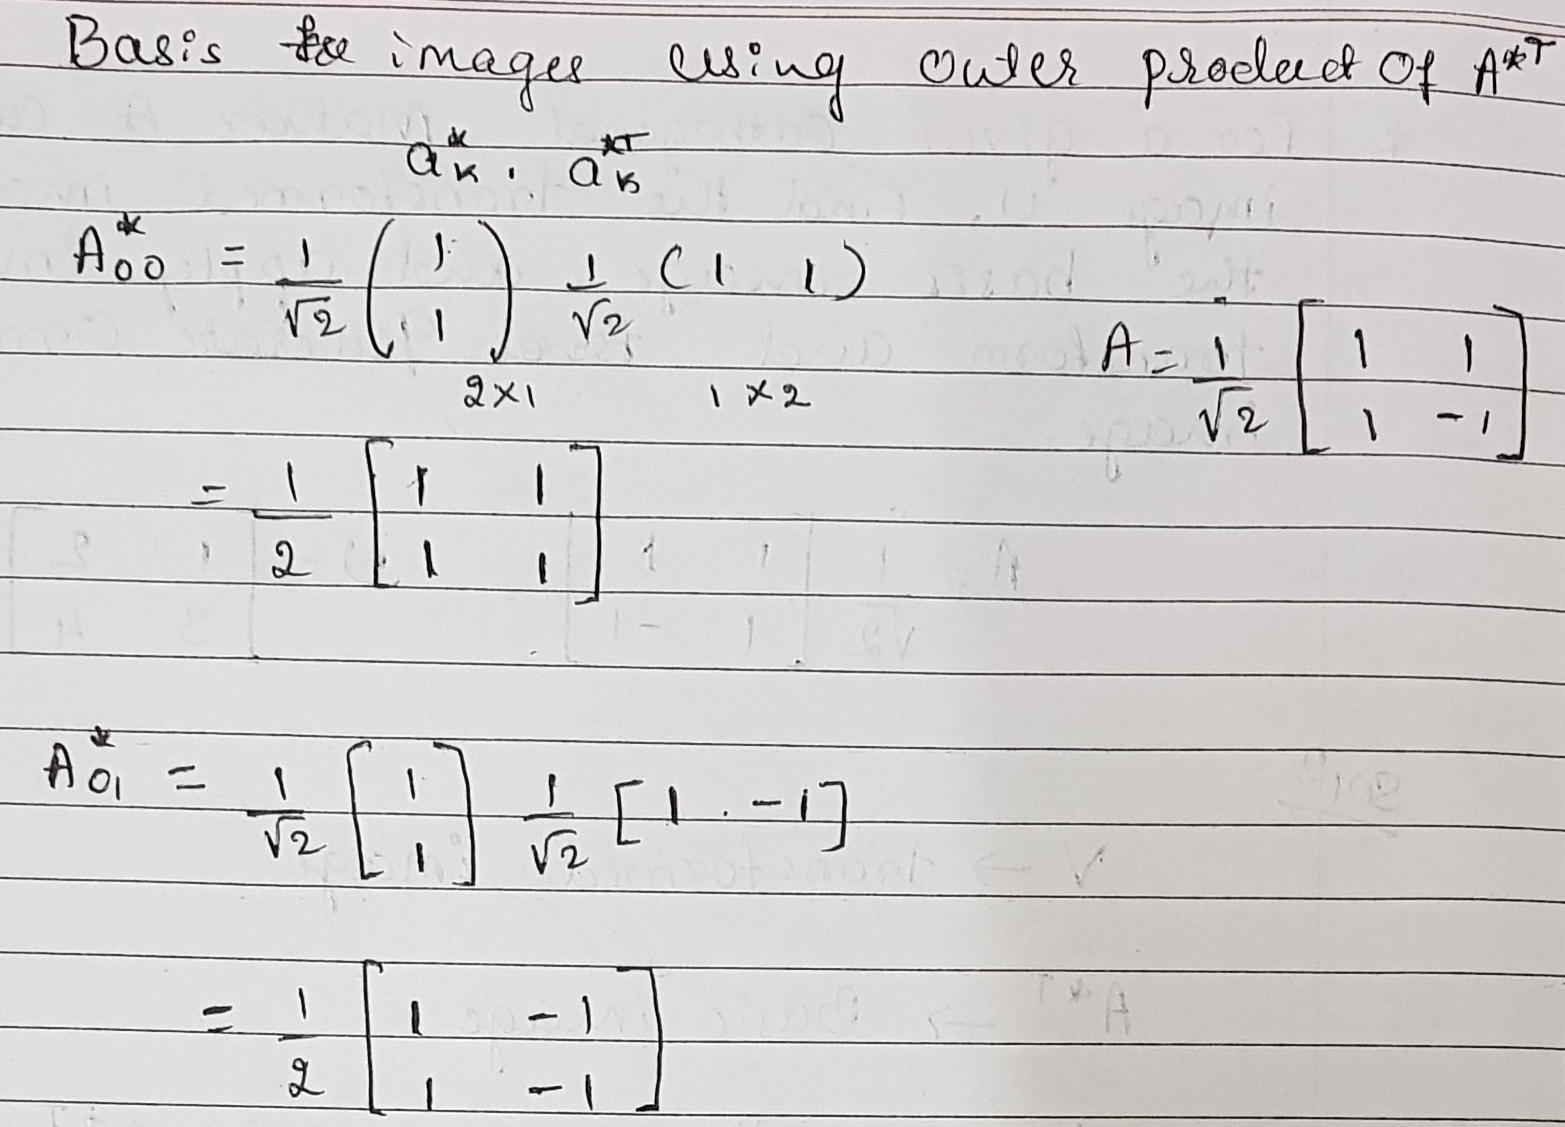 Basis for images using outer product of A*T
a*k . a*Tk
A*00 = 1/√2 (1 1) 1/√2 (1 1)
2×1 1×2
A = 1/√2 [1 1 1 -1]
= 1/2 [1 1 1 1]
A*01 = 1/√2 [1 1] 1/√2 [1 -1]
= 1/2 [1 -1 1 -1]